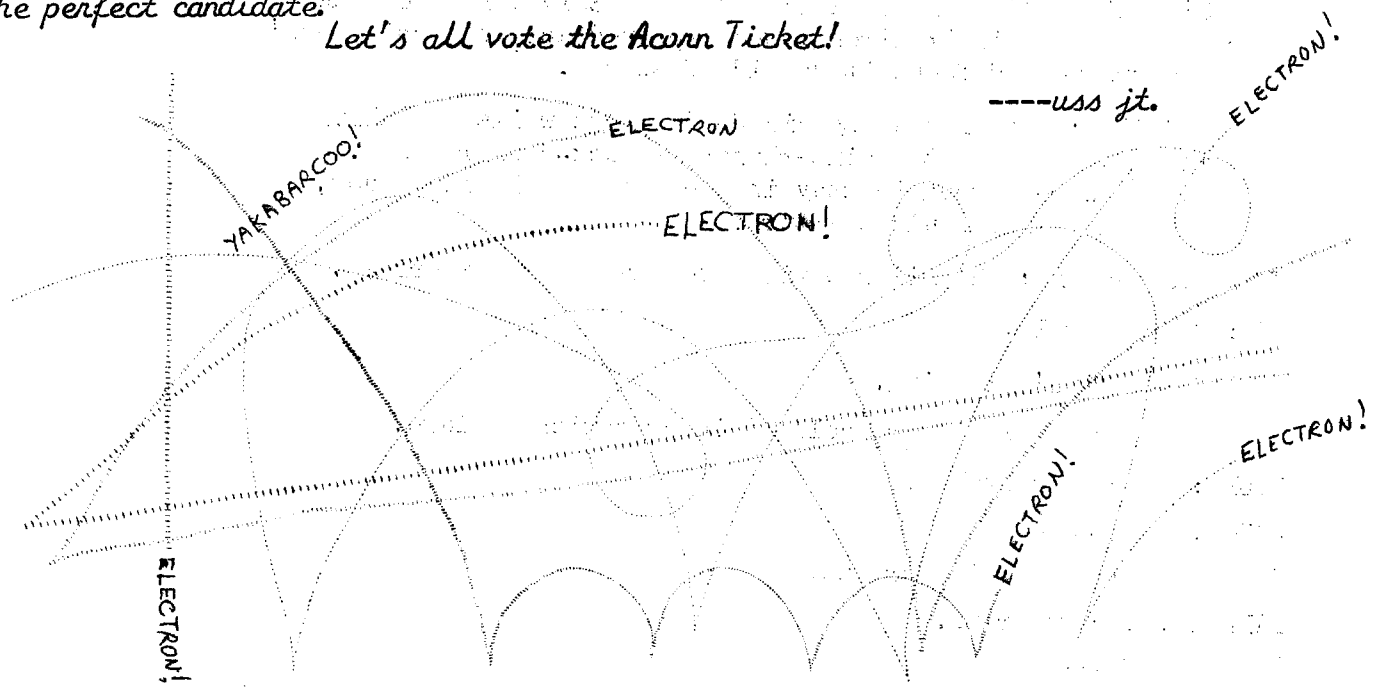 he perfect candidate.
Let's all vote the Acorn Ticket!
----uss jt.
ELECTRON!
ELECTRON
YAKABARCOO!
ELECTRON!
ELECTRON!
ELECTRON!
ELECTRON!